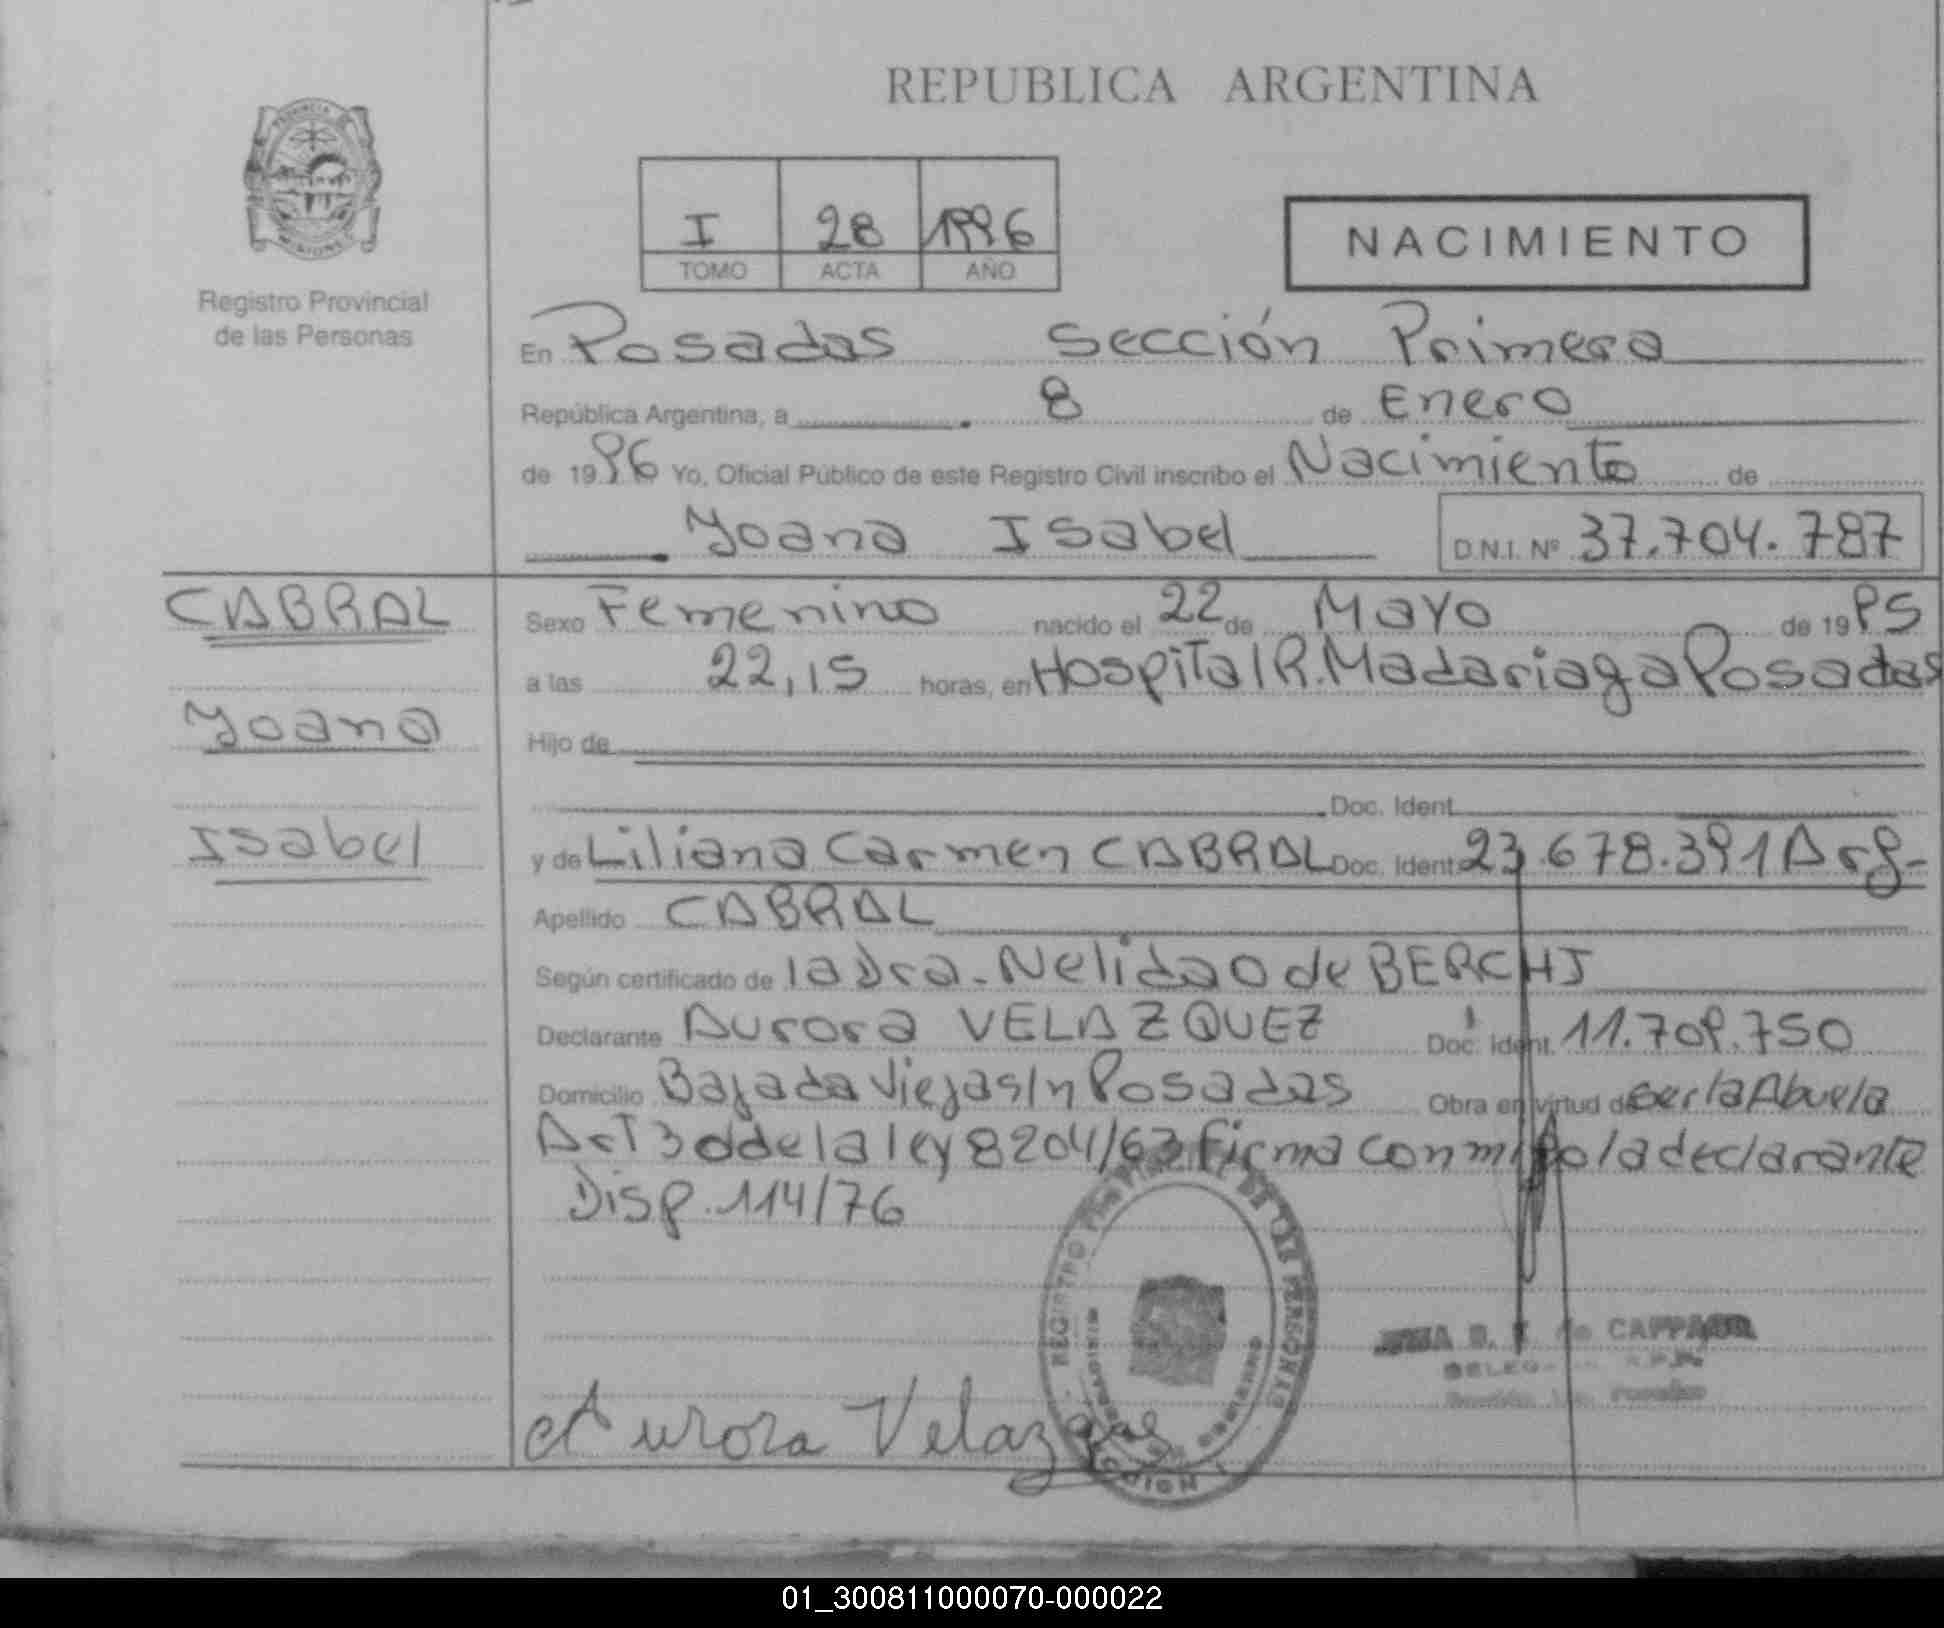 REPUBLICA ARGENTINA
I 28 1996
TOMO ACTA AÑO
NACIMIENTO
Registro Provincial
de las Personas
En Posadas Sección Primera
República Argentina, a 8 de Enero
de 1996 Yo, Oficial Público de este Registro Civil inscribo el Nacimiento de
Yoana Isabel D.N.I. Nº 37.704.787
CABRAL
Yoana
Isabel
Sexo Femenino nacido el 22 de Mayo de 1995
a las 22,15 horas, en Hospital R. Madariaga Posadas
Hijo de
Doc. Ident.
y de Liliana Carmen CABRAL Doc. Ident. 23.678.391 Arg-
Apellido CABRAL
Según certificado de la Dra. Nelida O de BERCHI
Declarante Aurora VELAZQUEZ Doc. Ident. 11.709.750
Domicilio Bajada Vieja s/n Posadas Obra en virtud de ser la Abuela
Art 30 d de la ley 8204/63 firma conmigo la declarante
Disp. 114/76
REGISTRO DE LAS PERSONAS
de CAPPA
Aurora Velazquez
01_300811000070-000022